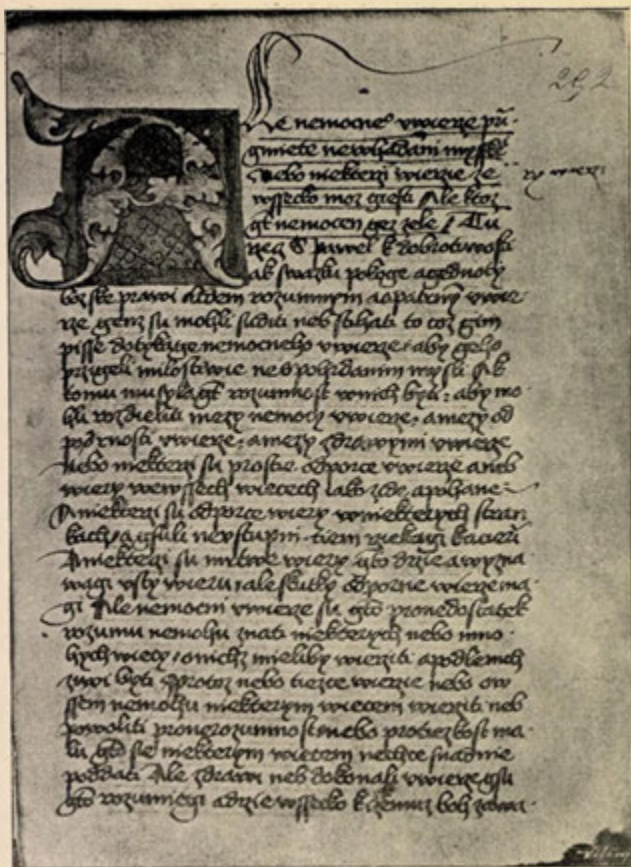 292
Ale nemocne° vwierze při
gmiete
Nebo niekterzi wierzie ze
wssecko moz giesti Ale ktoz
gt nemocen gez zele / Tu
rzecz S pawel k
ak swazku pologe agednoty
bozske prawi lidem rozumnym aopatrny vwie
rze genz su mohli suditi neb to coz gim
pisse dotykage nemocneho vwierze aby geho
przigeli milostiwie ne s pohrdanim mysli Ak
tomu musyla gt rozumnost wnich byti aby mo
hli rozdieliti mezy nemocy vwierze amezy od
pornosti vwierze amezy zdrawymi vwierze
nebo niekterzi su prostie odporce vwierze aneb
wiery wewssech wiecech iako zide apohane
Aniekterzi su odporce wiery wniekterych stran
kach tiem rziekagi kacierzi
Aniekterzi su mrtwe wiery gsto drzie awyzna
wagi vsty wieru ale skutky odporne wierze ma
gi Ale nemocni vwierze su gsto pronedostatek
rozumu nemohu znati niekterych nebo mno
hych wiecy onichz mieliby wierziti apodlenich
ziwi byti Protoz nebo tiezce wierzie nebo ow
ssem nemohu niekterym wiecem wierziti neb
powoliti pronerozumnost nebo protiezkost ma
lu gsto se niekterym wiecem nechce snadnie
poddati Ale zdrawi neb dokonali vwierze gsu
gsto rozumiegi adrzie wssecko kczemuz boh